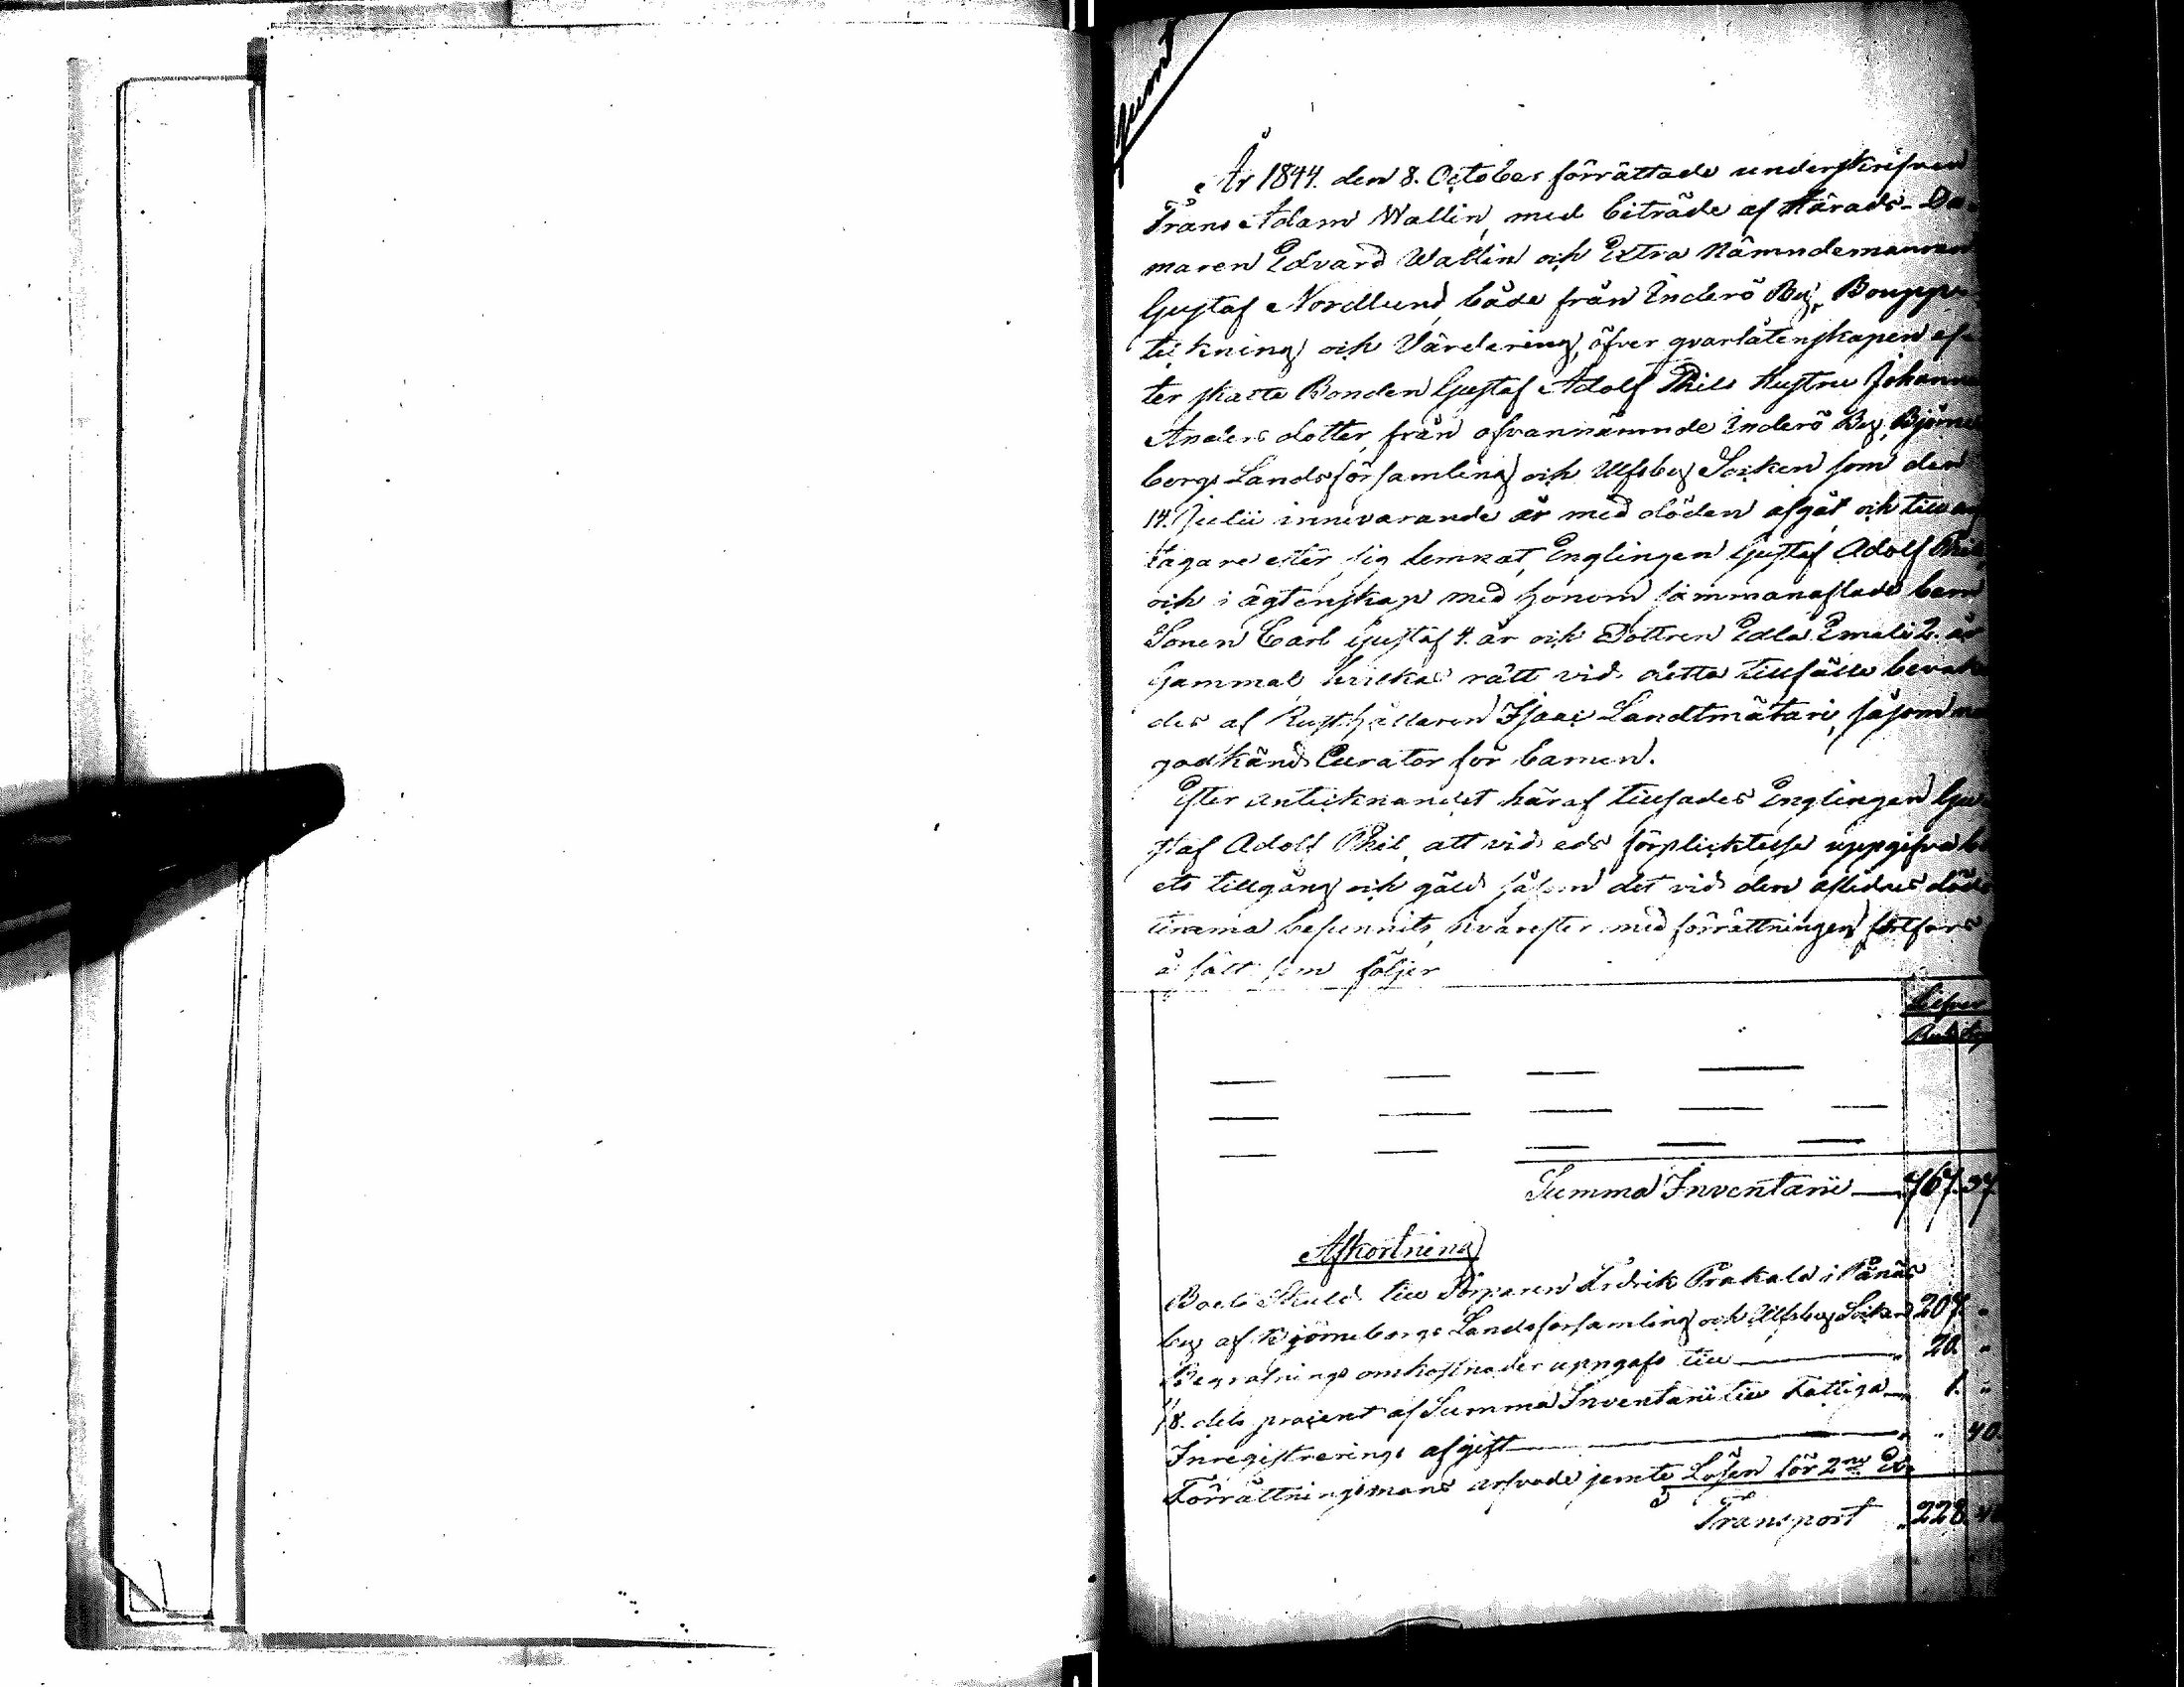 År 1844. den 8. October förrättade underskrifven
Frans Adam Wallin, med biträde af Härads-Do-
maren Edvard Wallin och Extra Nämndemannen
Gustaf Nordlund, både från Inderö By, Bouppe-
teckning och Värdering, öfver qvarlåtenskapen ef-
ter skatte Bonden Gustaf Adolf Phils Hustru Johanna
Anders dotter, från ofvannämnde Inderö By, Björne-
borgs Landsförsamling och Ulfsby Socken som den
14. Julii innevarande år med döden afgåt, och till arf
tagare efter sig lemnat, Englingen Gustaf Adolf Phil,
och i ägtenskap med honom sammanaflade barn
Sonen Carl Gustaf 4. år och Dottren Edla Emeli 2. år
Gammal hvilkas rätt vid detta tillfälle bevaka
des af Rusthållaren Isaac Landtmätari, såsom
godkänd Curator för barnen.
Efter antecknandet häraf tillsades Englingen Gu
staf Adolf Phil, att vid eds förplicktelse uppgifva bo
ets tillgång och gäld såsom det vid den aflidnes döds
timma befunnits, hvarefter med förrättningen fortfors
å sätt som följer
Silfver
Rub. Kop
Summa Inventarii 767. 37
Afkortning
Boets Skuld till Torparen Fredrik Prakala i Pånäs
by af Björneborgs Landsförsamling och Ulfsby Socken 207. "
Begrafnings omkostnader uppgafs till " 20. "
1/8. dels procent af Summa Inventarii till Fattiga " 1. "
Inregistrerings afgift " " 40.
Förrättningsmans arfvode jemte Lösen för 2ne Ex
Transport " 228. 40